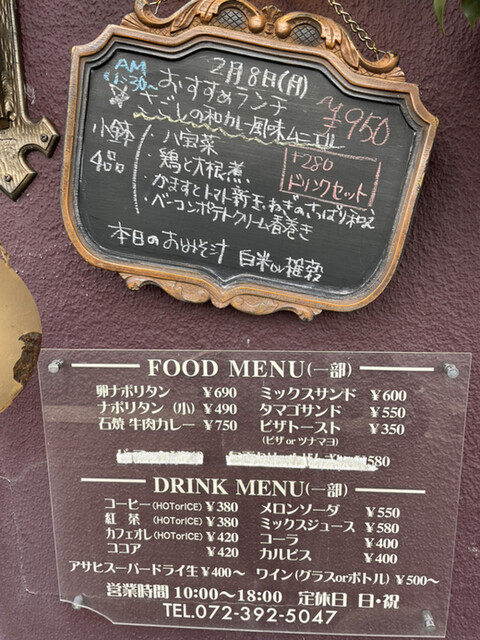 2月8日(月)
AM
11:30~
おすすめランチ
¥950
さごしの和カレー風味ムニエル
小鉢
4品
・八宝菜
・鶏と大根煮
・かますとトマト新玉ねぎのさっぱり和え
・ベーコンポテトクリーム春巻き
+280
ドリンクセット
本日のおみそ汁 白米or雑穀
FOOD MENU(一部)
卵ナポリタン ¥690 ミックスサンド ¥600
ナポリタン (小) ¥490 タマゴサンド ¥550
石焼 牛肉カレー ¥750 ピザトースト ¥350
(ピザ or ツナマヨ)
580
DRINK MENU(一部)
コーヒー(HOTorICE) ¥380 メロンソーダ ¥550
紅 茶 (HOTorICE) ¥380 ミックスジュース ¥580
カフェオレ(HOTorICE) ¥420 コーラ ¥400
ココア ¥420 カルピス ¥400
アサヒスーパードライ生 ¥400～ ワイン(グラスorボトル) ¥500～
営業時間 10:00～18:00 定休日 日・祝
TEL.072-392-5047